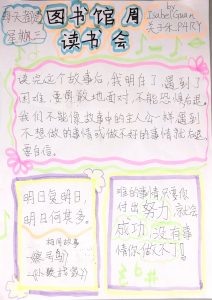 图书馆周
读书会
by
Isabel Guan
星期三
读完这个故事后，我明白了遇到了
困难，要勇敢地面对，不能恐惧后退。
我们不能像故事中的主人公一样遇到
不想做的事情或做不好的事情就后退
要自信。
明日复明日，
明日何其多。
相同故事
难的事情只要你
付出努力就会
成功，没有事
情你做不了！